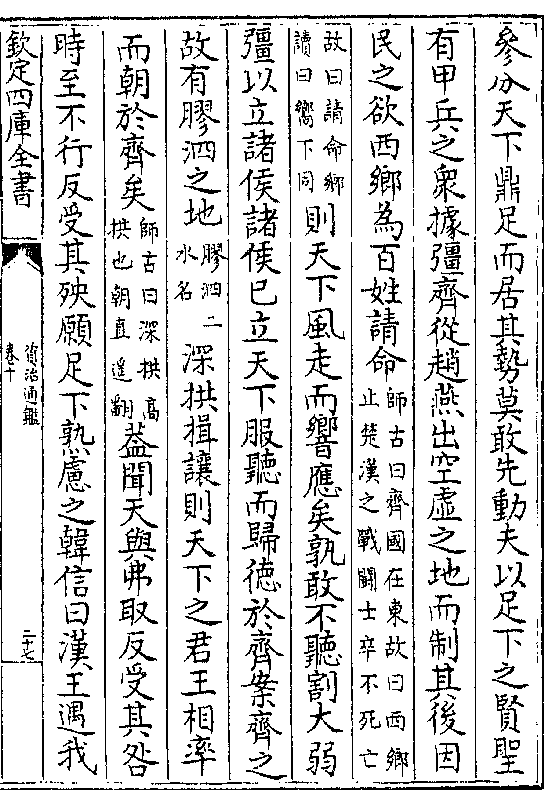 參分天下鼎足而居其勢莫敢先動夫以足下之賢聖
有甲兵之衆據彊齊從趙燕出空虛之地而制其後因
民之欲西鄉為百姓請命師古曰齊國在東故曰西鄉止楚漢之戰鬬士卒不死亡
故曰請命鄉讀曰嚮下同則天下風走而響應矣孰敢不聽割大弱
彊以立諸侯諸侯已立天下服聽而歸德於齊案齊之
故有膠泗之地膠泗二水名深拱揖讓則天下之君王相率
而朝於齊矣師古曰深拱高拱也朝直遥翻葢聞天與弗取反受其咎
時至不行反受其殃願足下熟慮之韓信曰漢王遇我
欽定四庫全書
資治通鑑
卷十
二十七